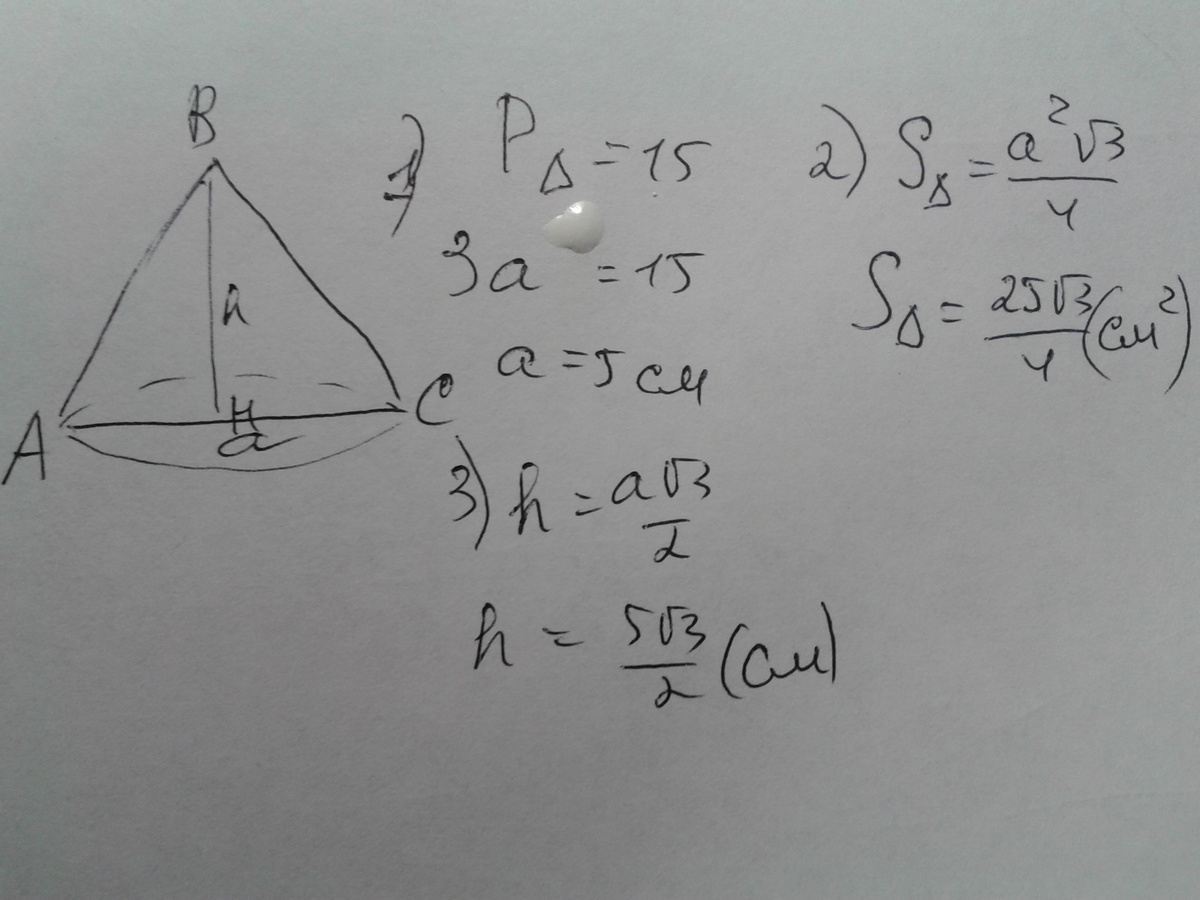 B
h
A
H
C
a
1) P△ = 15
3a = 15
a = 5 см
2) S△ = a²√3/4
S△ = 25√3/4 (см²)
3) h = a√3/2
h = 5√3/2 (см)